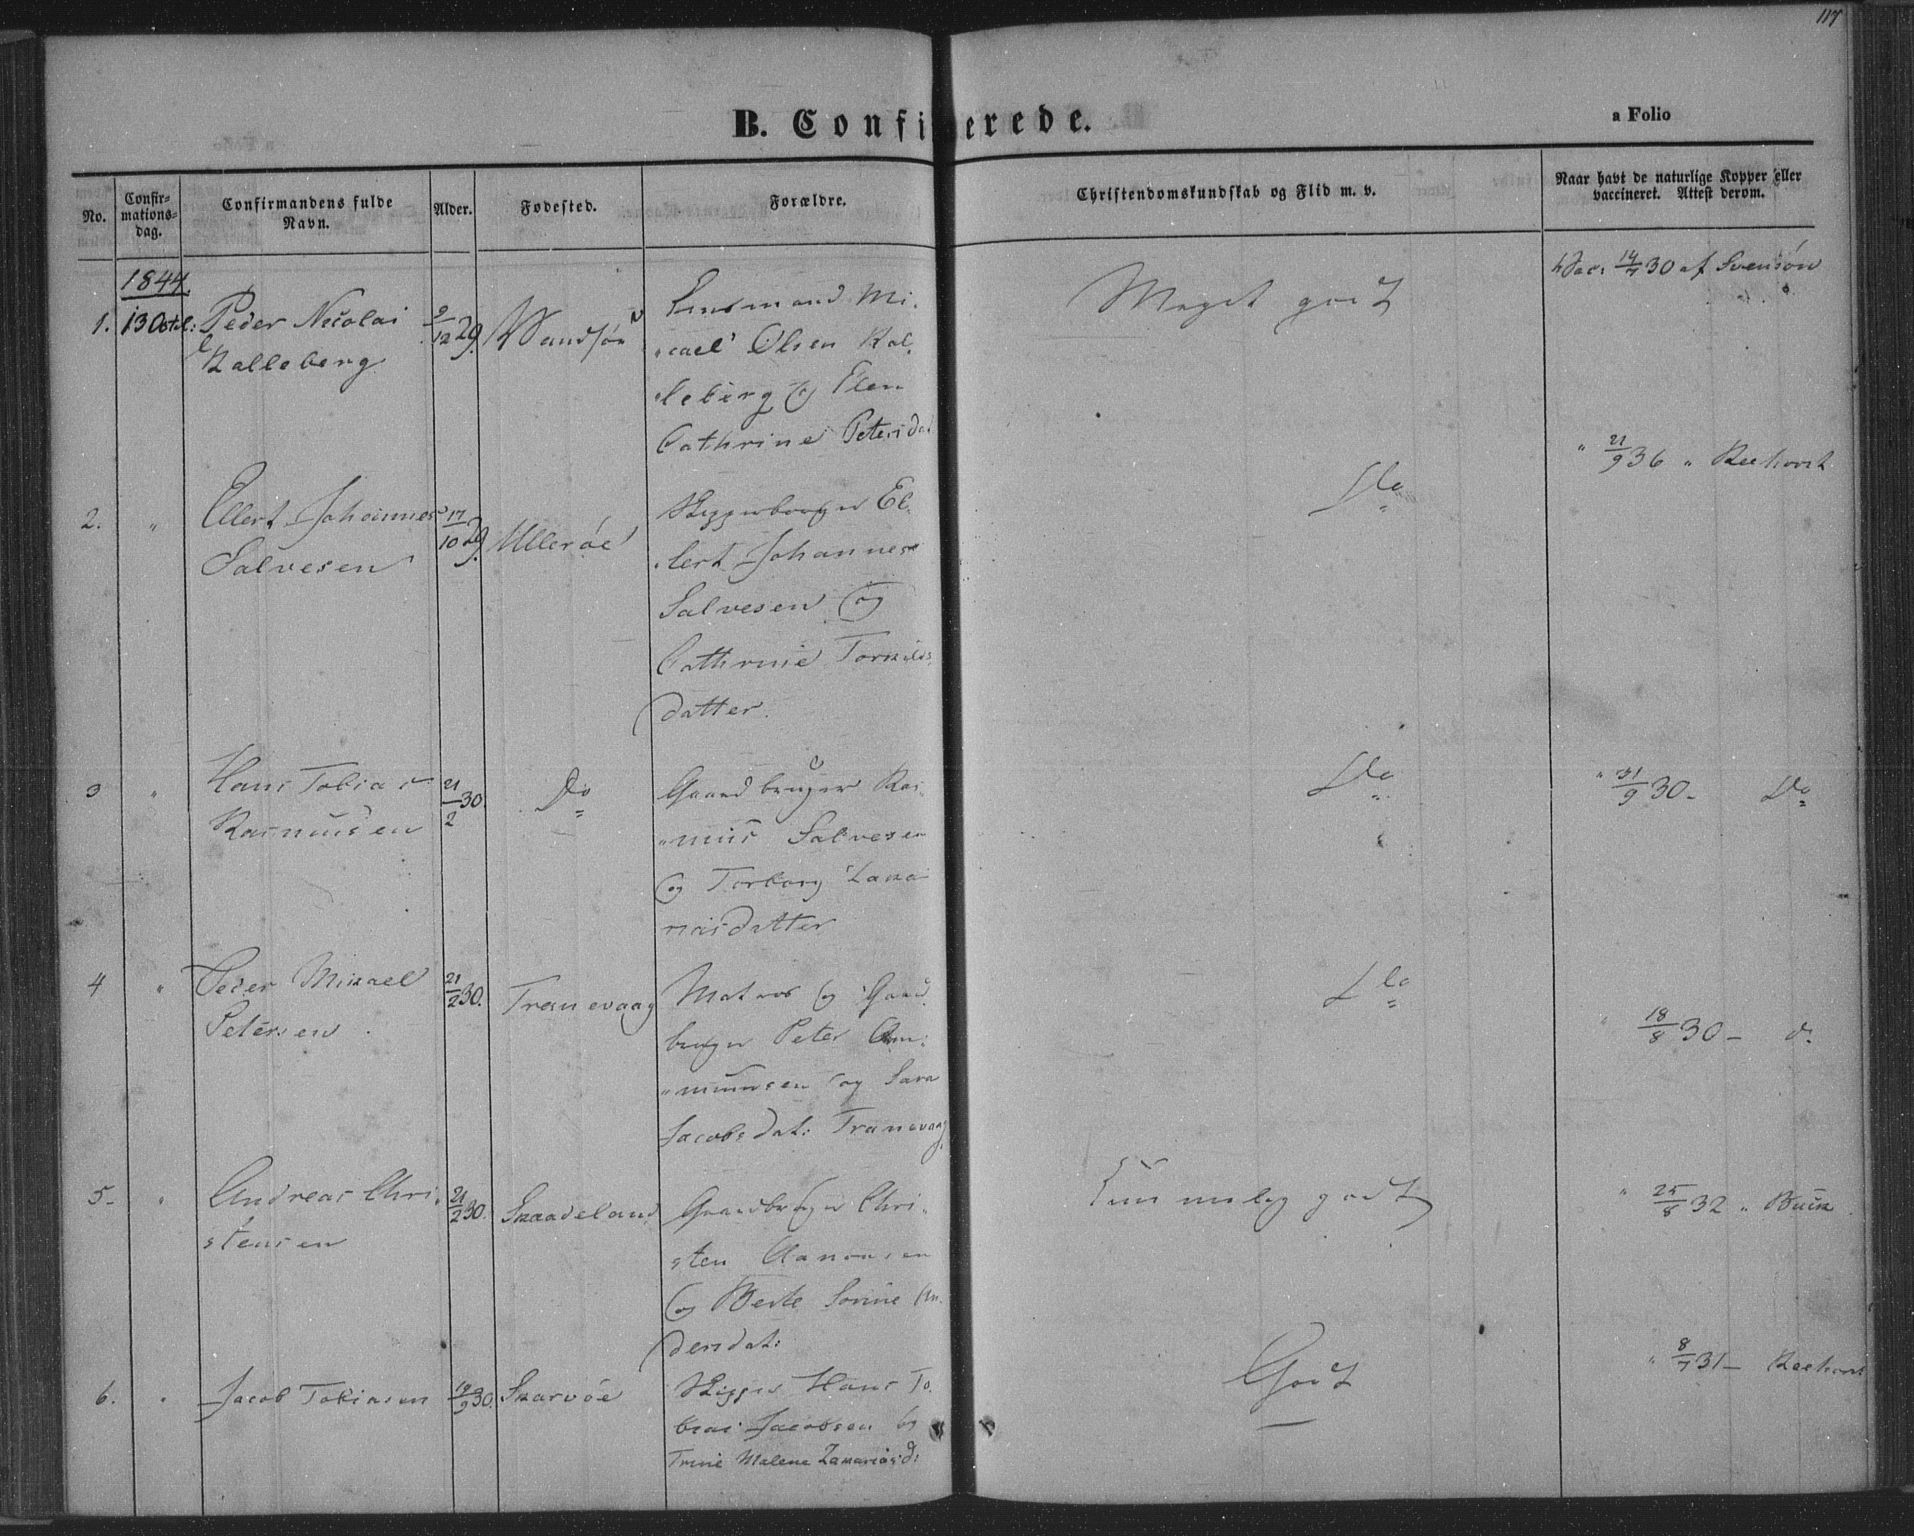 117
B. Confirmerede.
a Folio
No.
Confir-
mations-
dag.
Confirmandens fulde
Navn.
Alder.
Fødested.
Forældre.
Christendomskundskab og Flid m. v.
Naar havt de naturlige Kopper eller
vaccineret. Attest derom.
1844.
1. 13 Octbl: Peder Nicolai 9/12 29. Sandsøe
Kalleberg
Mi-
cael Olsen Kal-
leberg og Elen
Cathrine Petersda
Meget godt
Vac: 14/7 30 af Svensøn
2. " Ellert Johannes 17/10 29. Ullerøe
Salvesen
Skipperborger El-
lert Johannes
Salvesen og
Cathrine Torkilds
datter.
Do
" 21/9 36 " Reehorst
3 " Hans Tobias 21/2 30 Do
Rasmusen
Gaardbruger Ras-
mus Salvesen
og Torborg Zaka
riasdatter
Do
" 31/9 30 - Do
4 " Peder Mikael 21/2 30. Tranevaag
Petersen.
Matros og Gaard
bruger Peter Am-
munsen og Sara
Jacobsdat: Tranevaag
Do
" 18/8 30 - d.
5- " Andreas Chri- 21/2 30. Skaadeland
stensen
Gaardbruger Chri-
sten Aanonsen
og Berte Sorine An-
dersdat:
Temmelig godt
" 25/8 32 " Buck
6. " Jacob Tobiasen 19/9 30. Skarvøe
Skipper Hans To-
bias Jacobsen og
Trine Malene Zakarias:d:
Godt
" 8/7 31 - Reehorst